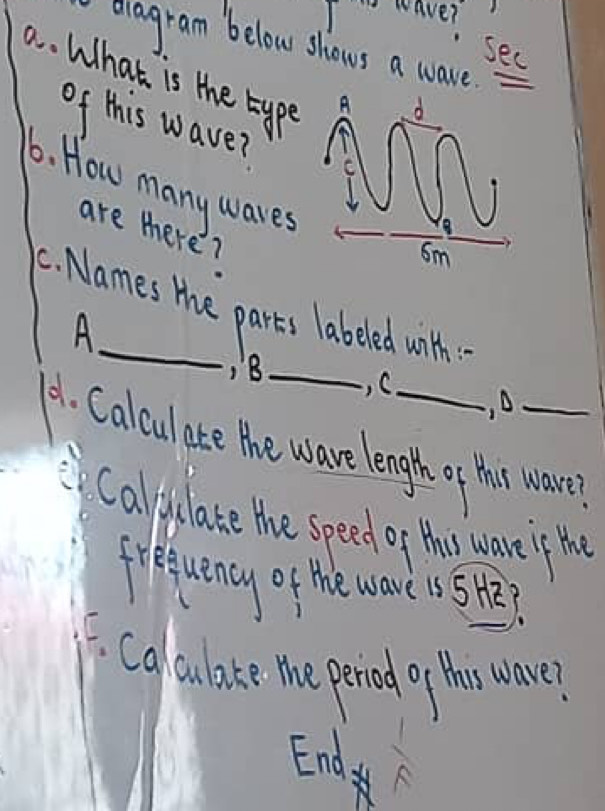 wave?
diagram below shows a wave. Sec
a. What is the type
of this wave?
b. How many waves
are there?
A
d
C
B
6m
c. Names the parts labeled with :-
A ______, B ______, C ______, D ______
d. Calculate the wave length of this wave?
e. Calculate the speed of this wave if the
frequency of the wave is 5 HZ?
F. Calculate the period of this wave?
End #